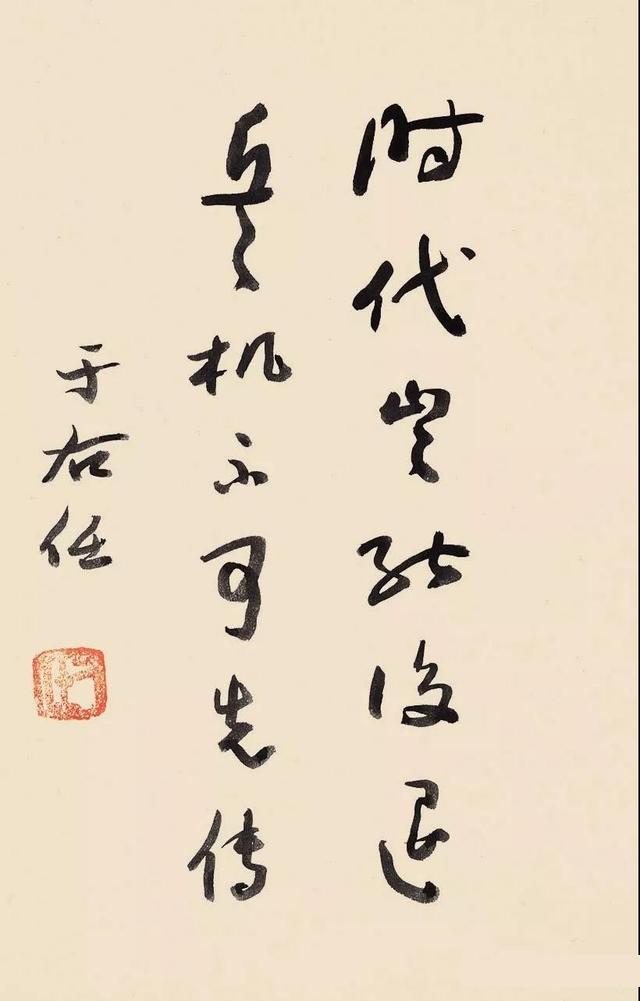 时代岂能后退
兵机不可先传
于右任